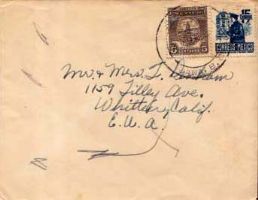 5
CORREOS MEXICO
Mr. & Mrs. T.
1159 Tilley Ave.
Whittier, Calif.
E. U. A.